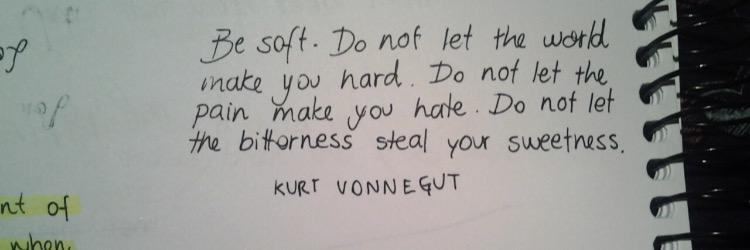 Be soft. Do not let the world
make you hard. Do not let the
pain make you hate. Do not let
the bitterness steal your sweetness.
KURT VONNEGUT
of
nt of
when,